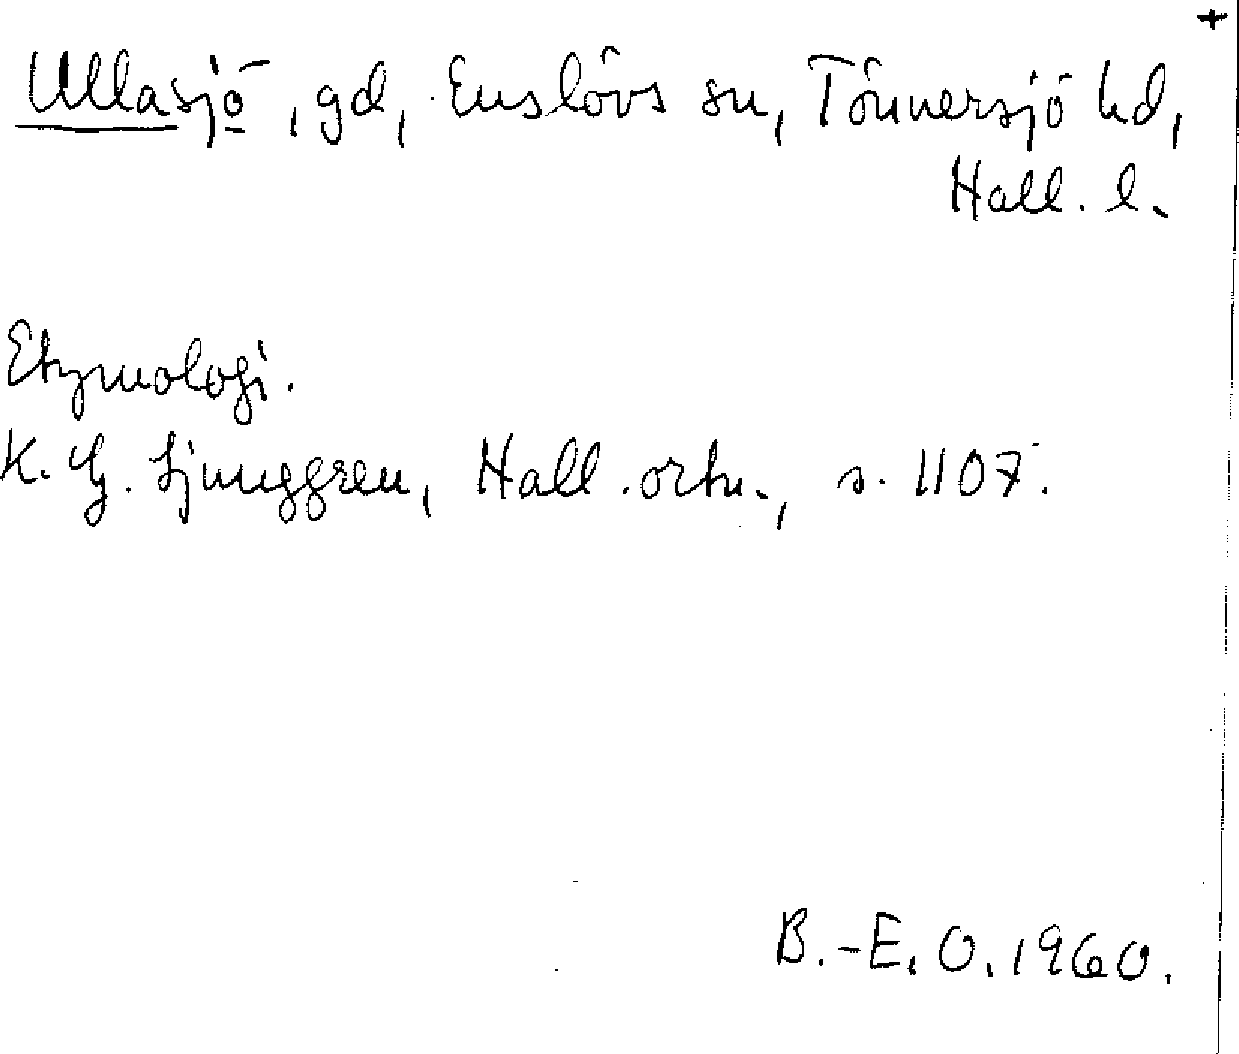 +
Ullasjö, gd, Enslövs sn, Tönnersjö hd,
Hall. l.
Etymologi.
K. G. Ljunggren, Hall. ortn., s. 1107.
B.-E. O. 1960.